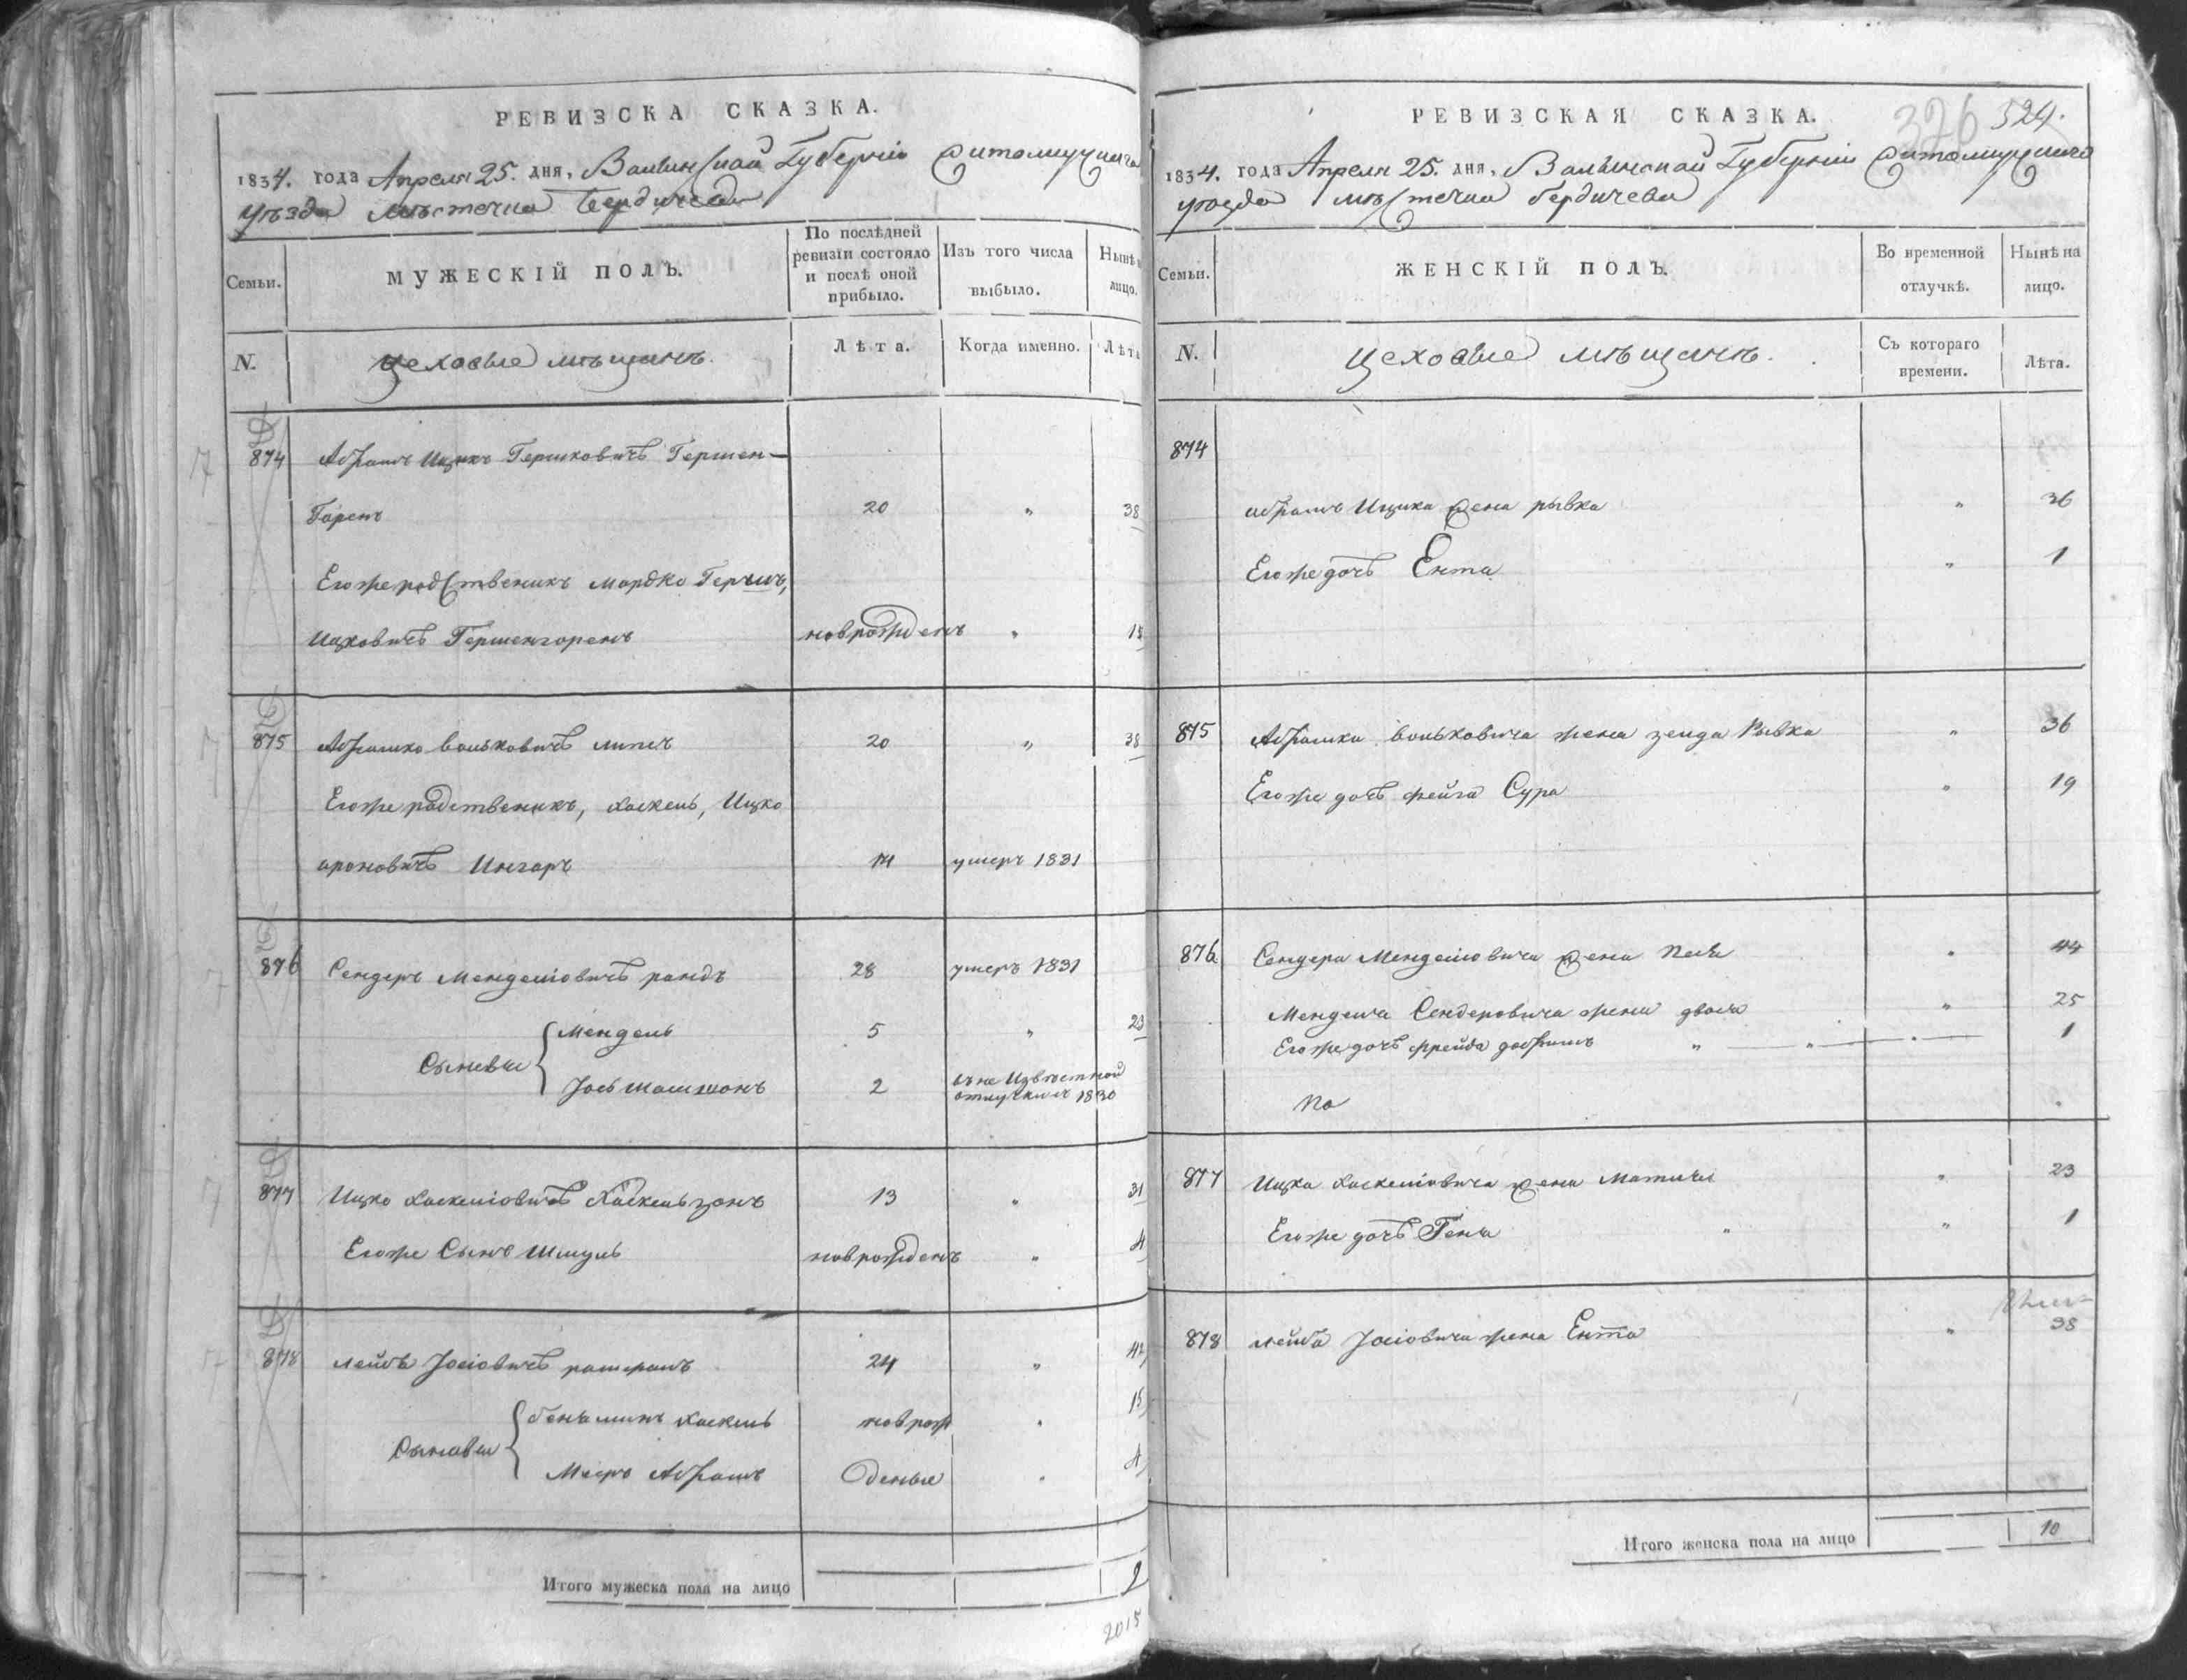 РЕВИЗСКА СКАЗКА.
1834. года Апреля 25. дня, Волынской Губерніи Житомирскаго
уѣзда мѣстечка Бердичева
Семьи.
МУЖЕСКІЙ ПОЛЪ.
По послѣдней ревизіи состояло и послѣ оной прибыло.
Изъ того числа выбыло.
Нынѣ лицо.
N.
цеховые мѣщанъ.
Лѣта.
Когда именно.
Лѣта
874 Абрамъ Ицикъ Гершковичъ Гершен-
Горенъ 20 " 38
Его же родственикъ Мордко Гершъ,
Ицковичъ Гершенгоренъ новрожденъ " 15
875 Абрамко Вольковичъ 20 " 38
Его же родственикъ, Хаскель, Ицко
ароновичъ Унгаръ 14 умеръ 1831
876 Сендеръ Менделіовичъ рандъ 28 умеръ 1831
Сыновьи { Мендель 5 " 23
Іось Шамшонъ 2 въ не Извѣстной
отлучки съ 1830
877 Ицко Хаскеліовичъ Хаскельзонъ 13 " 31
Его же Сынъ Шмуль новрожденъ " 4
878 Лейба Іосіовичъ 24 " 42
Сыновьи { беньяминъ Хаскель новрож " 15
Мееръ Абрамъ деные " 4
Итого мужеска пола на лицо 9
2015
РЕВИЗСКАЯ СКАЗКА.
326 524.
1834. года Апреля 25. дня, Волынской Губерніи Житомирскаго
уѣзда мѣстечка Бердичева
Семьи.
ЖЕНСКІЙ ПОЛЪ.
Во временной отлучкѣ.
Нынѣ на лицо.
N.
цеховые мѣщанъ.
Съ котораго времени.
Лѣта.
874
абрамъ Ицика жена рывка " 36
Его же дочь Ента " 1
875 Абрамка Вольковича жена зенда Рывка " 36
Его же дочь фейга Сура " 19
876 Сендера Менделіовича жена Песя " 44
Менделя Сендеровича жена двося " 25
Его же дочь фрейда добрышъ " " 1
No
877 Ицка Хаскеліовича жена Матля " 23
Его же дочь Геня " " 1
878 Лейба Іосіовича жена Ента " 38
Итого женска пола на лицо 10